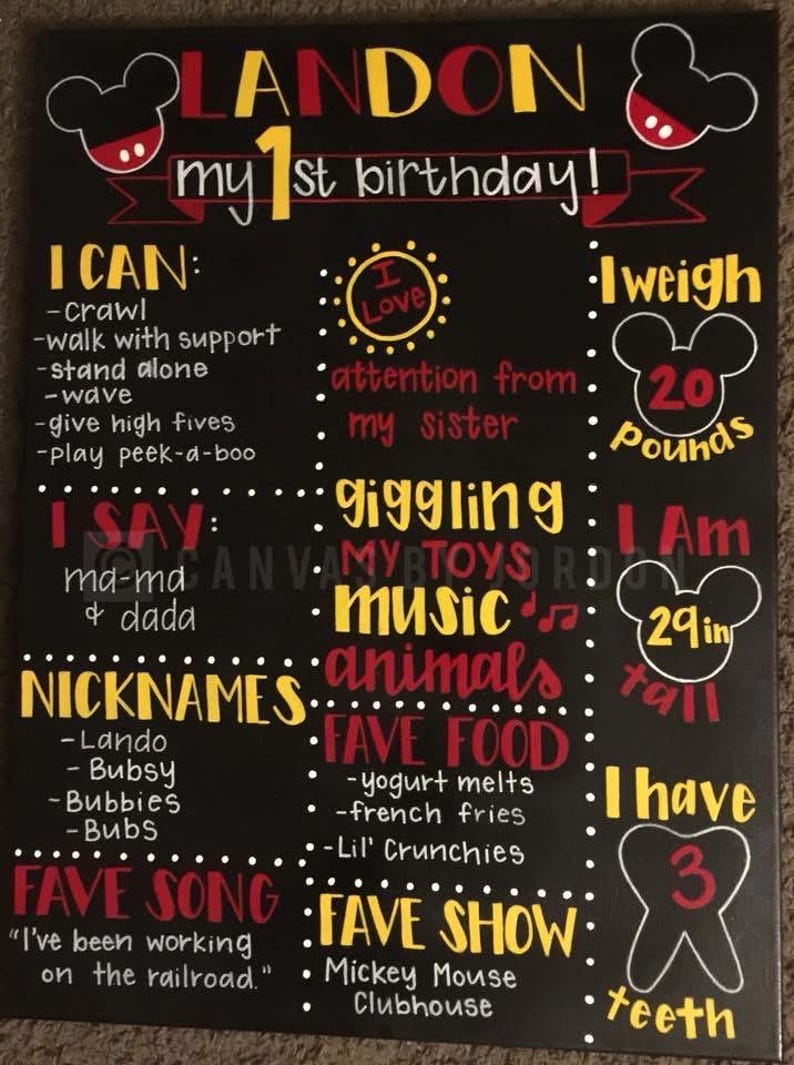 LANDON
my 1st birthday!
I CAN:
-crawl
-walk with support
-stand alone
-wave
-give high fives
-play peek-a-boo
I SAY:
ma-ma
& dada
NICKNAMES
-Lando
- Bubsy
-Bubbies
-Bubs
FAVE SONG
"I've been working
on the railroad."
I
Love
attention from
my sister
giggling
MY TOYS
music
animals
FAVE FOOD
-yogurt melts
-french fries
-Lil' Crunchies
FAVE SHOW
Mickey Mouse
Clubhouse
I weigh
20
pounds
I Am
29 in
tall
I have
3
teeth
CANVAS BY JORDON